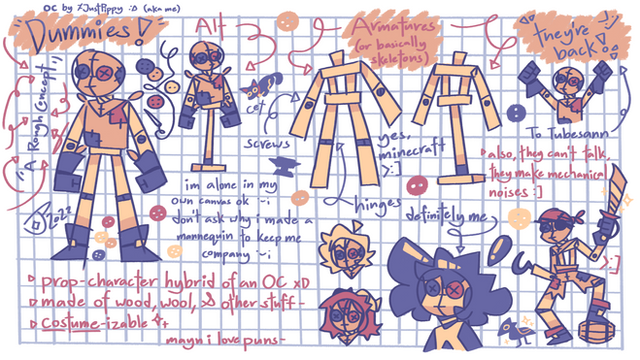 OC by ZJustPippy :D (aka me)
Dummies!
"A Rough Concept"
Alt
cet
Armatures
(or basically
skeletons)
they're
back!
To Tubesann
screws
yes,
minecraft
>:]
hinges
also, they can't talk,
they make mechanical
noises :]
im alone in my
own canvas ok -i
don't ask why i made a
mannequin to keep me
company -i
2022
definitely me
>:]
prop-character hybrid of an OC xD
made of wood, wool, & other stuff-
costume-izable
mayn i love puns-